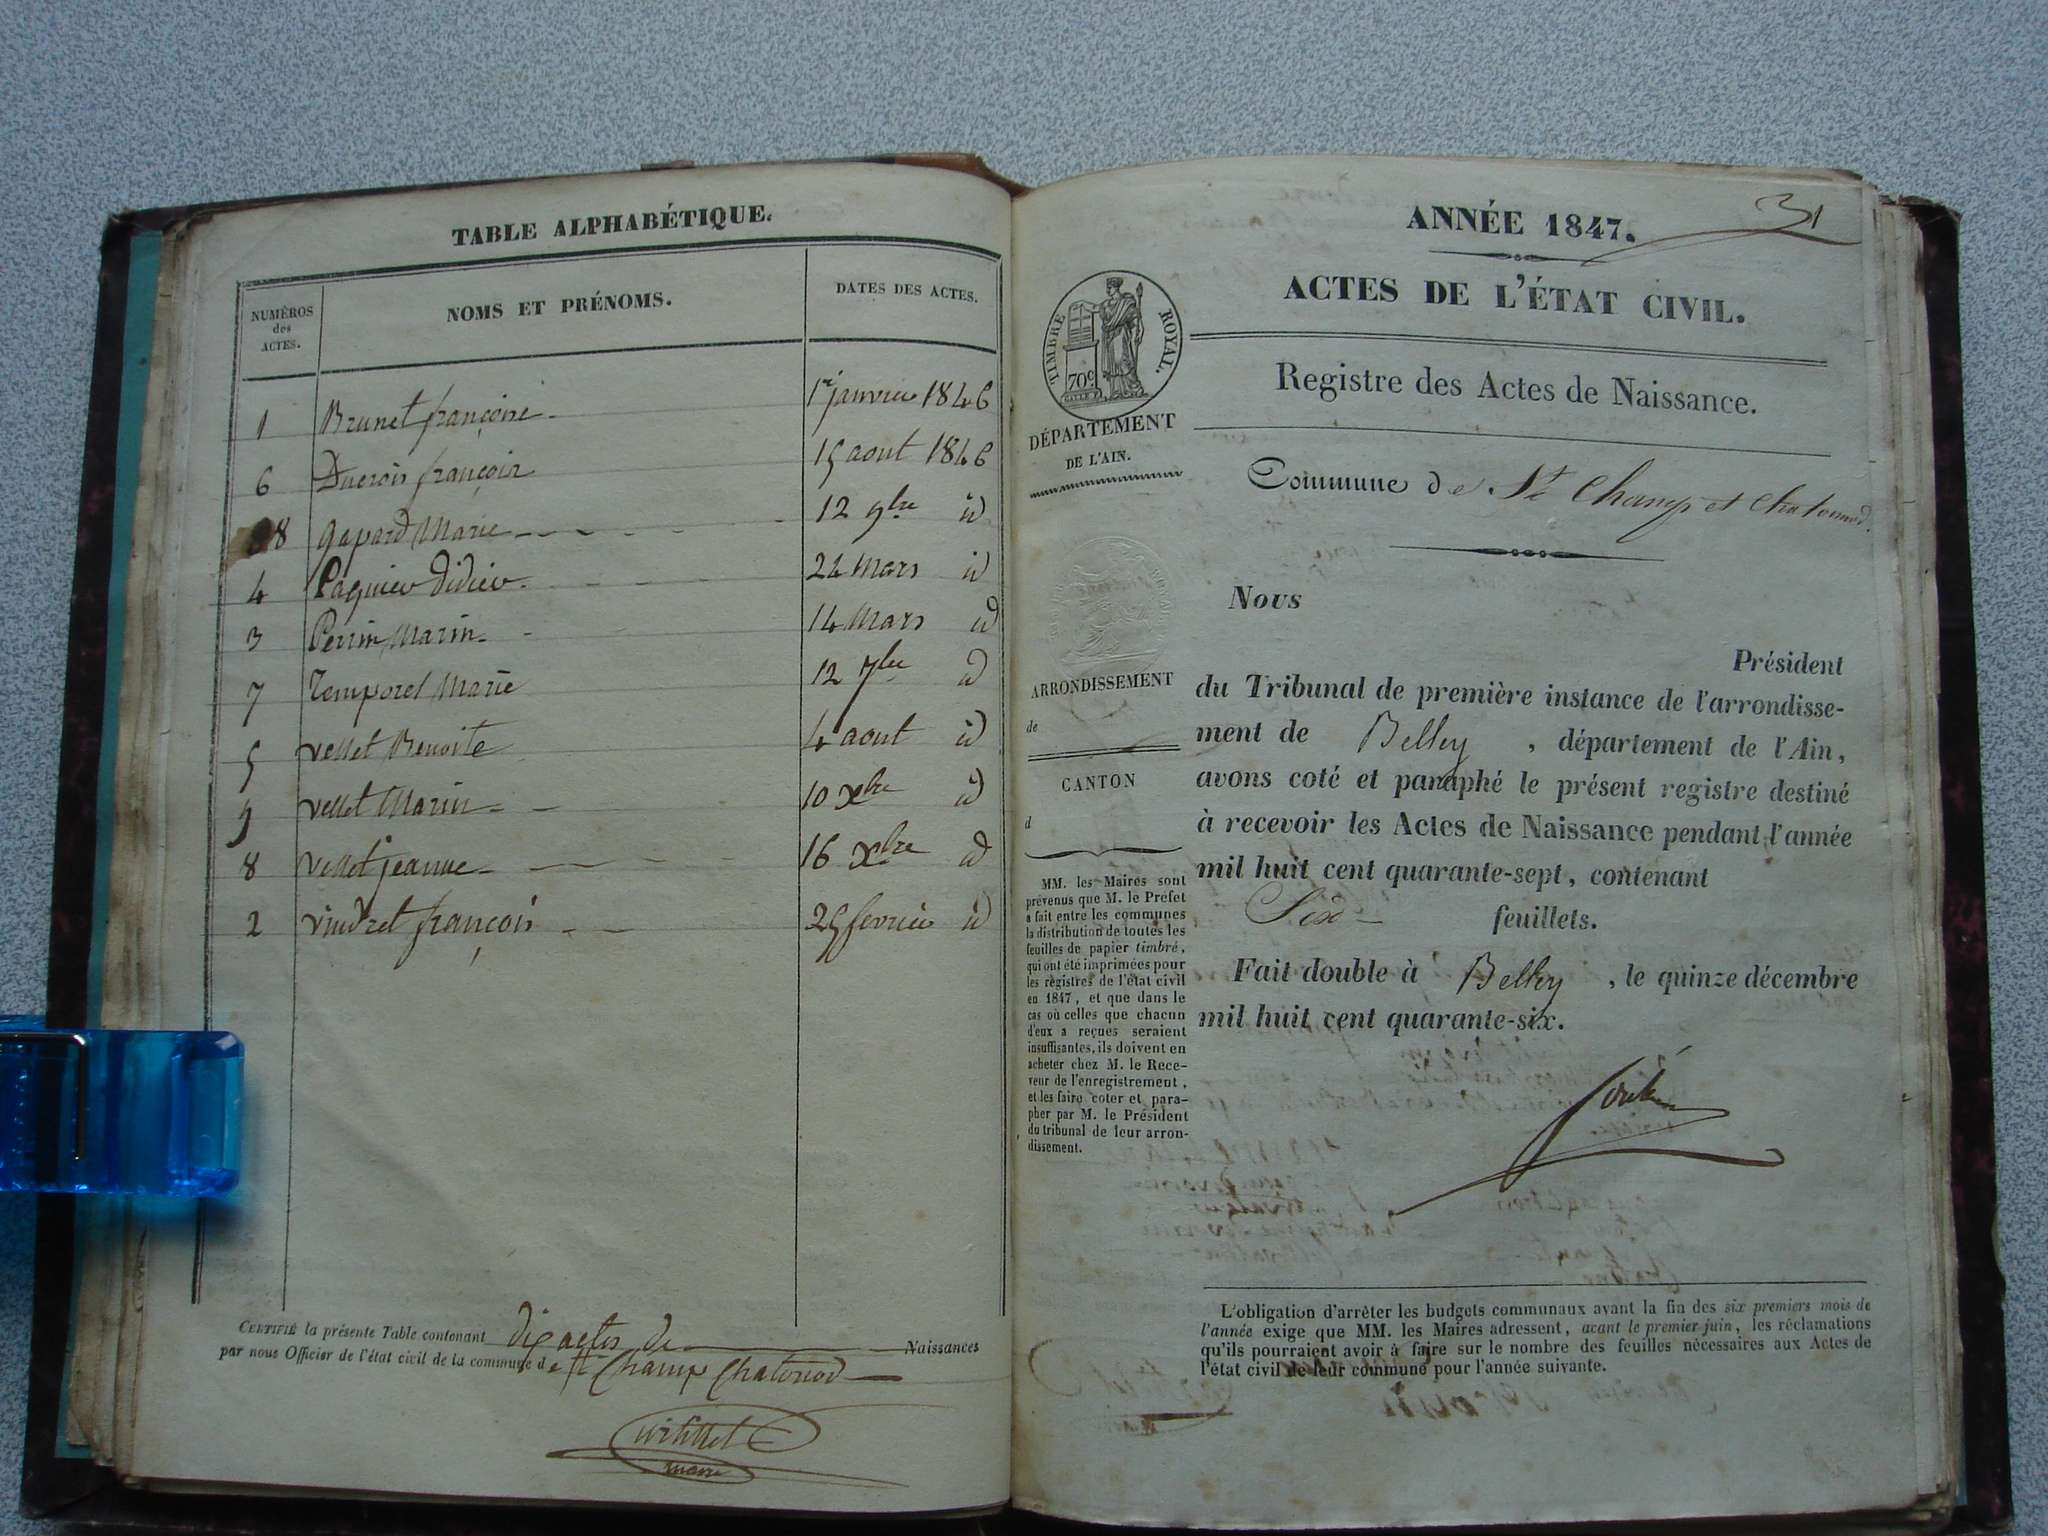 TABLE ALPHABÉTIQUE.
NUMÉROS des ACTES. NOMS ET PRÉNOMS. DATES DES ACTES.
1 Brunet françoise 1er janvier 1846
6 Ducrois françois 15 aout 1846
8 gapard Marie 12 9bre id
4 Pagnier didier 24 Mars id
3 Perrin Marin 14 Mars id
7 Temporel Marie 12 7bre id
5 vellet Benoite 4 aout id
9 vellet Marin 10 xbre id
8 vellet jeanne 16 xbre id
2 vindret françois 25 fevrier id
CERTIFIÉ la présente Table contenant dix actes de Naissances
par nous Officier de l'état civil de la commune de St Champ Chatonod
maire
31
ANNÉE 1847.
ACTES DE L'ÉTAT CIVIL.
Registre des Actes de Naissance.
Commune de St Champ et Chatonnod.
TIMBRE ROYAL.
70c
DÉPARTEMENT
DE L'AIN.
ARRONDISSEMENT
de
CANTON
d
MM. les Maires sont
prévenus que M. le Préfet
a fait entre les communes
la distribution de toutes les
feuilles de papier timbré,
qui ont été imprimées pour
les registres de l'état civil
en 1847, et que dans le
cas où celles que chacun
d'eux a reçues seraient
insuffisantes, ils doivent en
acheter chez M. le Rece-
veur de l'enregistrement,
et les faire coter et para-
pher par M. le Président
du tribunal de leur arron-
dissement.
Nous
Président
du Tribunal de première instance de l'arrondisse-
ment de Belley, département de l'Ain,
avons coté et paraphé le présent registre destiné
à recevoir les Actes de Naissance pendant l'année
mil huit cent quarante-sept, contenant
Six feuillets.
Fait double à Belley, le quinze décembre
mil huit cent quarante-six.
L'obligation d'arrêter les budgets communaux avant la fin des six premiers mois de
l'année exige que MM. les Maires adressent, avant le premier juin, les réclamations
qu'ils pourraient avoir à faire sur le nombre des feuilles nécessaires aux Actes de
l'état civil de leur commune pour l'année suivante.